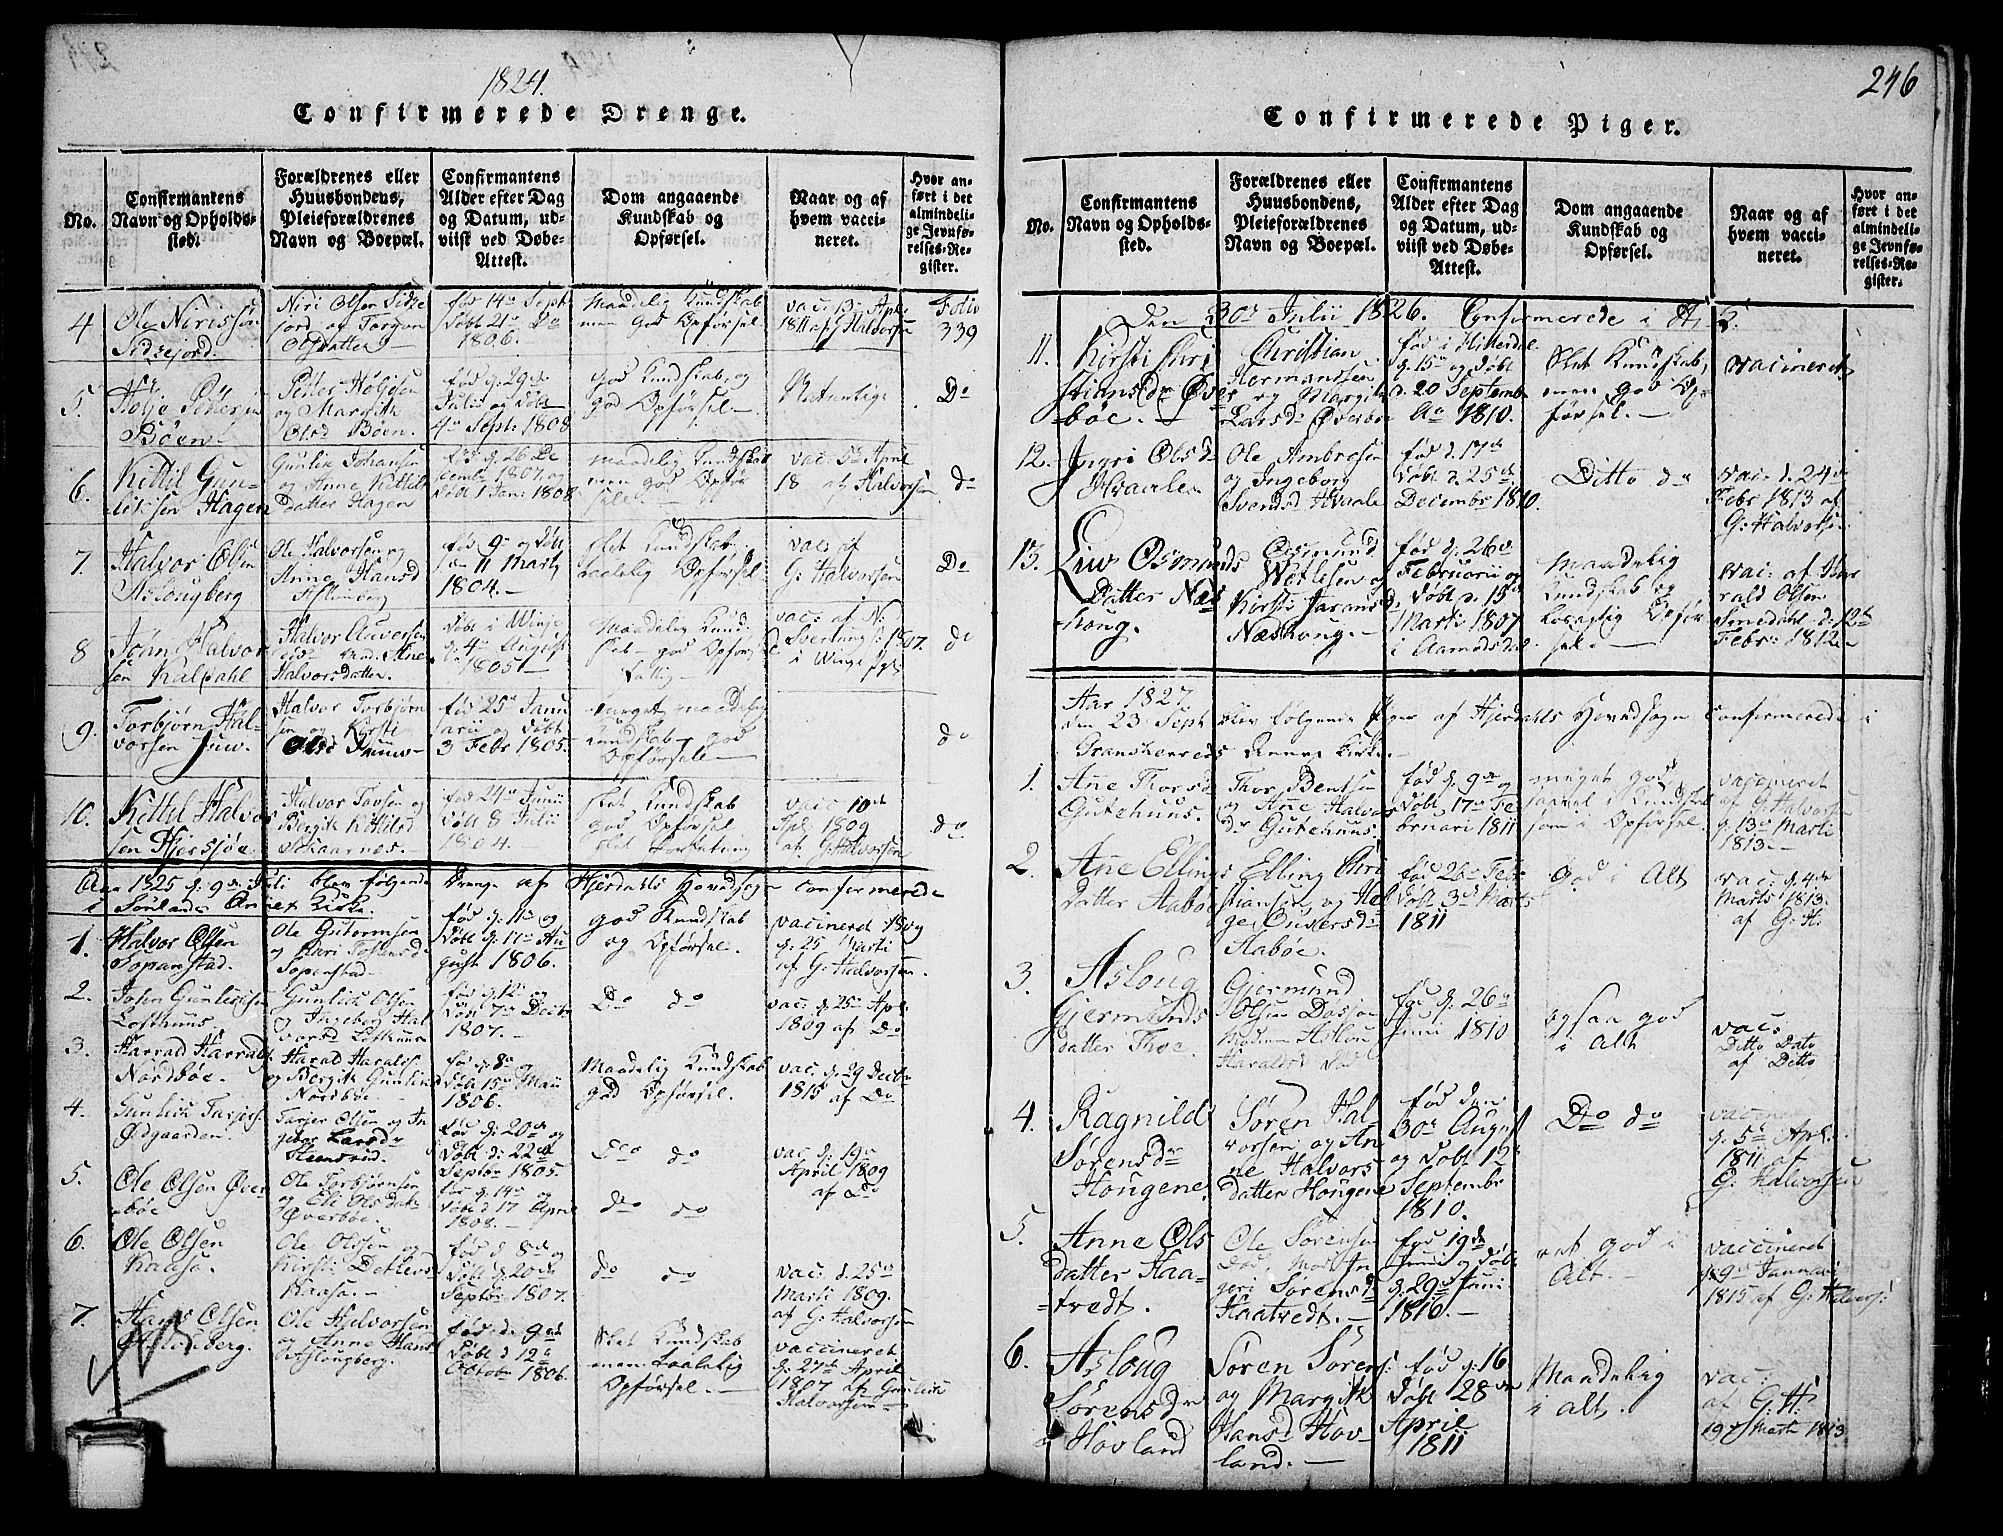 1824.
Confirmerede Drenge.
No.
Confirmantens Navn og Opholdssted.
Forældrenes eller Huusbondens, Pleieforældrenes Navn og Boepæl.
Confirmantens Alder efter Dag og Datum, udviist ved Døbe-Attest.
Dom angaaende Kundskab og Opførsel.
Naar og af hvem vaccineret.
Hvor anført i det almindelige Jevnførelses-Register.
4
Ole Nirissøn
Niri Olsen
Olsdatter
fød 14de Sept:
døbt 21de Do
1806.
Maadelig Kundskab
men god Opførsel
vac: 13de Apl:
1811 af G Halvorsen
Folio
339
5.
Bøen
Peder
og Margith
Olsd Bøen.
fød d. 29de
Julii og døbt
4de Sept: 1808
god Kundskab, og
god Opførsel
Naturlige
Do
6.
Kittil Gun-
Hagen
Johansen
og Anne Kittils
datter Hagen
fød d. 26 De
cembr 1807 og
døbt 1 Jan: 1808
maadelig Kundskab
men god Opfør
sel
vac: 5te April
18 af Halvorsen
do
7.
Halvor Olsen
Aslougberg
Ole Halvorsen og
Anne Hansd
fød 9de og døbt
den 11 Marti
1804.
slet Kundskab
taalelig Opførsel
vac: af
G: Halvorsen
Do
8
John Halvor
sen Kaldahl
Halvor
Halvorsdatter.
døbt i Winje
d. 4de August
1805
Maadelig Kund
skab - god Opførsel
vac: af N:
1807.
i Winje
do
9.
Torbjørn Hal-
vorsen Juv.
Halvor Torbjørn
sen og Kirsti
Olsd Juuv
fød 25de Janu
arii og døbt
3 Febr 1805.
meget maadelig
Kundskab, god
Opførsel
do
10.
Kittel Halvor
sen Hjersjøe
Halvor Tovsen og
Bergit Kittilsd
Skaarnes.
fød 24de Junii
døbt 8 Julii
1804.
slet Kundskab
god Opførsel
vac: 10de
Apl: 1809
af G: Halvorsen
do
Aar 1825 d. 9de Juli blev følgende Drenge af Hjerdahls Hovedsogn confirmerede
i Sønlands Annex Kirke.
1.
Halvor Olsen
Sopanstad.
Ole Gutormsen
og
Sopanstad
fød d. 11te og
døbt d. 17de Au
gusti 1806.
god Kundskab
og Opførsel.
vaccinered 1809
d: 25 Marti
af G: Halvorsen.
2.
John Gunliksen
Lofthuus
Gunlik Olsen
og Ingeborg Hal
vorsd Lofthuus
fød d. 12te og
døbt 7de Decbr
1807.
Do do
vac: d. 25de Apl:
1809 af Do
3.
Harrad Harrads
Nordbøe.
Harad Haralds
og Bergit Gunliksd
Nordbøe
fød d. 8de og
døbt 15de Maii
1806.
Maadelig Kundskab
god Opførsel.
vac: d. 29 Decbr
1815 af Do
4.
Gunlick Tarjers
Ødgaarden.
Tarjer Olsen og In
gebor Larsdr
fød d: 20de og
døbt d: 22de
Septbr 1805.
do do
vac d. 19de
April 1809
af Do
5.
Ole Olsen Øver
-bøe
Ole Torbjørnsen
og Eli Olsdatr
Øverbøe.
fød d. 14de og
døbt d. 17 April
1808.
do do
6.
Ole Olsen
Kaasa.
Ole Olsen og
Kirsti Detlevsd
Kaasa.
fød d. 8de og
døbt d. 20de
Septbr 1807.
do do
vac: d. 25de
Marti 1809.
af G: Halvorsen
7.
Hans Olsen
Ole Halvorsen
og Anne Hansd
Aslougberg.
fød d. 9de
døbt d 12te
October 1806.
Slet Kundskab
men taalelig
Opførsel.
vaccineret
d. 27de April
1807 af Gunlick
Halvorsen
246
Confirmerede Piger.
No.
Confirmantens Navn og Opholdssted.
Forældrenes eller Huusbondens, Pleieforældrenes Navn og Boepæl.
Confirmantens Alder efter Dag og Datum, udviist ved Døbe-Attest.
Dom angaaende Kundskab og Opførsel.
Naar og af hvem vaccineret.
Hvor anført i det almindelige Jevnførelses-Register.
Den 30de Julii 1826. Confirmerede i
11.
Kirsti Chri
stiansdr Øver
bøe.
Christian
Hermansen
og Margit
Larsdr Øverbøe
fød i Hitterdal
d. 15de og døbt
d. 20 Septembr
Ao 1810.
Slet Kundskab,
men god Op
førsel.
vaccineret
12.
Ingri Olsdr
Hvaale
Ole Ambresen
og Ingeborg
Svendsd Hvaale
fød d. 17de
døbt d. 25de
Decembr 1810.
Ditto do
vac: d. 24de
Febr 1813 af
G: Halvorsen
13.
Liv Osmunds
Datter Næs
houg.
Osmund
Wetlesen og
Kirsti Jaransd
Næshoug.
fød d. 26de
Februarii og
døbt d. 15de
Marti 1807
i Aamodsdal
Maadelig
Kundskab og
Opfør
sel.
vac: af Har
rald Olsen
Smedahl d. 12te
Febr: 1812
Aar 1827
den 23 Sept blev følgende Piger af Hjerdahls Hovedsogn Confirmerede i
Gransherreds Annex Kirke.
1.
Ane Thorsd
Gutehuus.
Thor Bentsen
og Ane Halvors
dr Gutehuus.
fød d. 9de og
døbt 17de Fe
bruari 1811
meget god
saavel i Kundskab
som i Opførsel.
vaccineret
af G: Halvorsen
d. 13de Marti
1813.
2.
Ane Ellings
datter Aabøe
Elling Chri
stiansen og Hel
ge
Aabøe.
fød 26de Febr
døbt 3de Marts
1811
God i Alt
vac: d. 4de
Marts 1813.
af G: H.
3.
Asloug
Gjermunds
datter
Gjermund
Olsen
Haraldsd
fød d. 26de
Juni 1810
ogsaa god
i Alt
vac:
Ditto Dato
af Ditto
4.
Ragnild
Sørensdr
Hougene.
Søren Hal-
vorsen og An
ne Halvors
datter Hougene
fød den
30de August
og døbt 12te
Septembr
1810.
Do do
d. 5te Apl:
1811 af
G: Halvorsen
5.
Anne Ols
datter Haa-
-tvedt.
Ole Sørensen
geri Sørensd
Haatvedt.
fød 19de
Juni og døbt
d. 29de Juni
1810.
god i
Alt.
vaccineret
d. 9de Januari
1815 af G: Halvors:
6.
Asloug
Sørensdr
Hovland
Søren Sørens:
og Margith
Hansd Hov-
land.
fød d. 16
døbt 28de
April
1811
Maadelig
i Alt.
vac:
af G. H:
19de Marti 1813